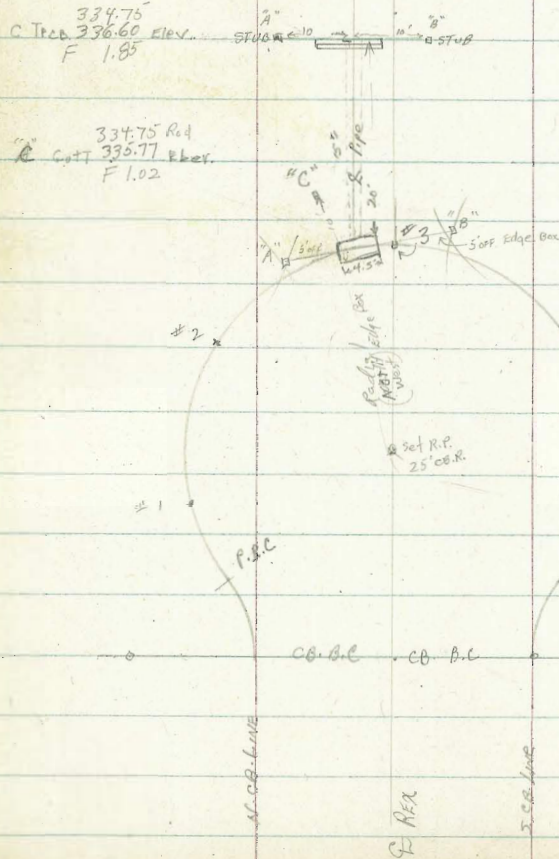 334.75
C TPCB 336.60 Elev.
F 1.85
"A"
STUB
10
10'
"B"
STUB
334.75 Rod
"C" 335.77 Elev.
F 1.02
5"
Pipe
20'
"C"
"A"
5'OFF
4.5'
#3
"B"
5'OFF Edge Box
#2
Radial Edge Box
West
Set R.P.
25' CB.R.
#1
P.R.C
CB. B.C
CB. B.C
N. CB. LINE
℄ REX
S CB LINE